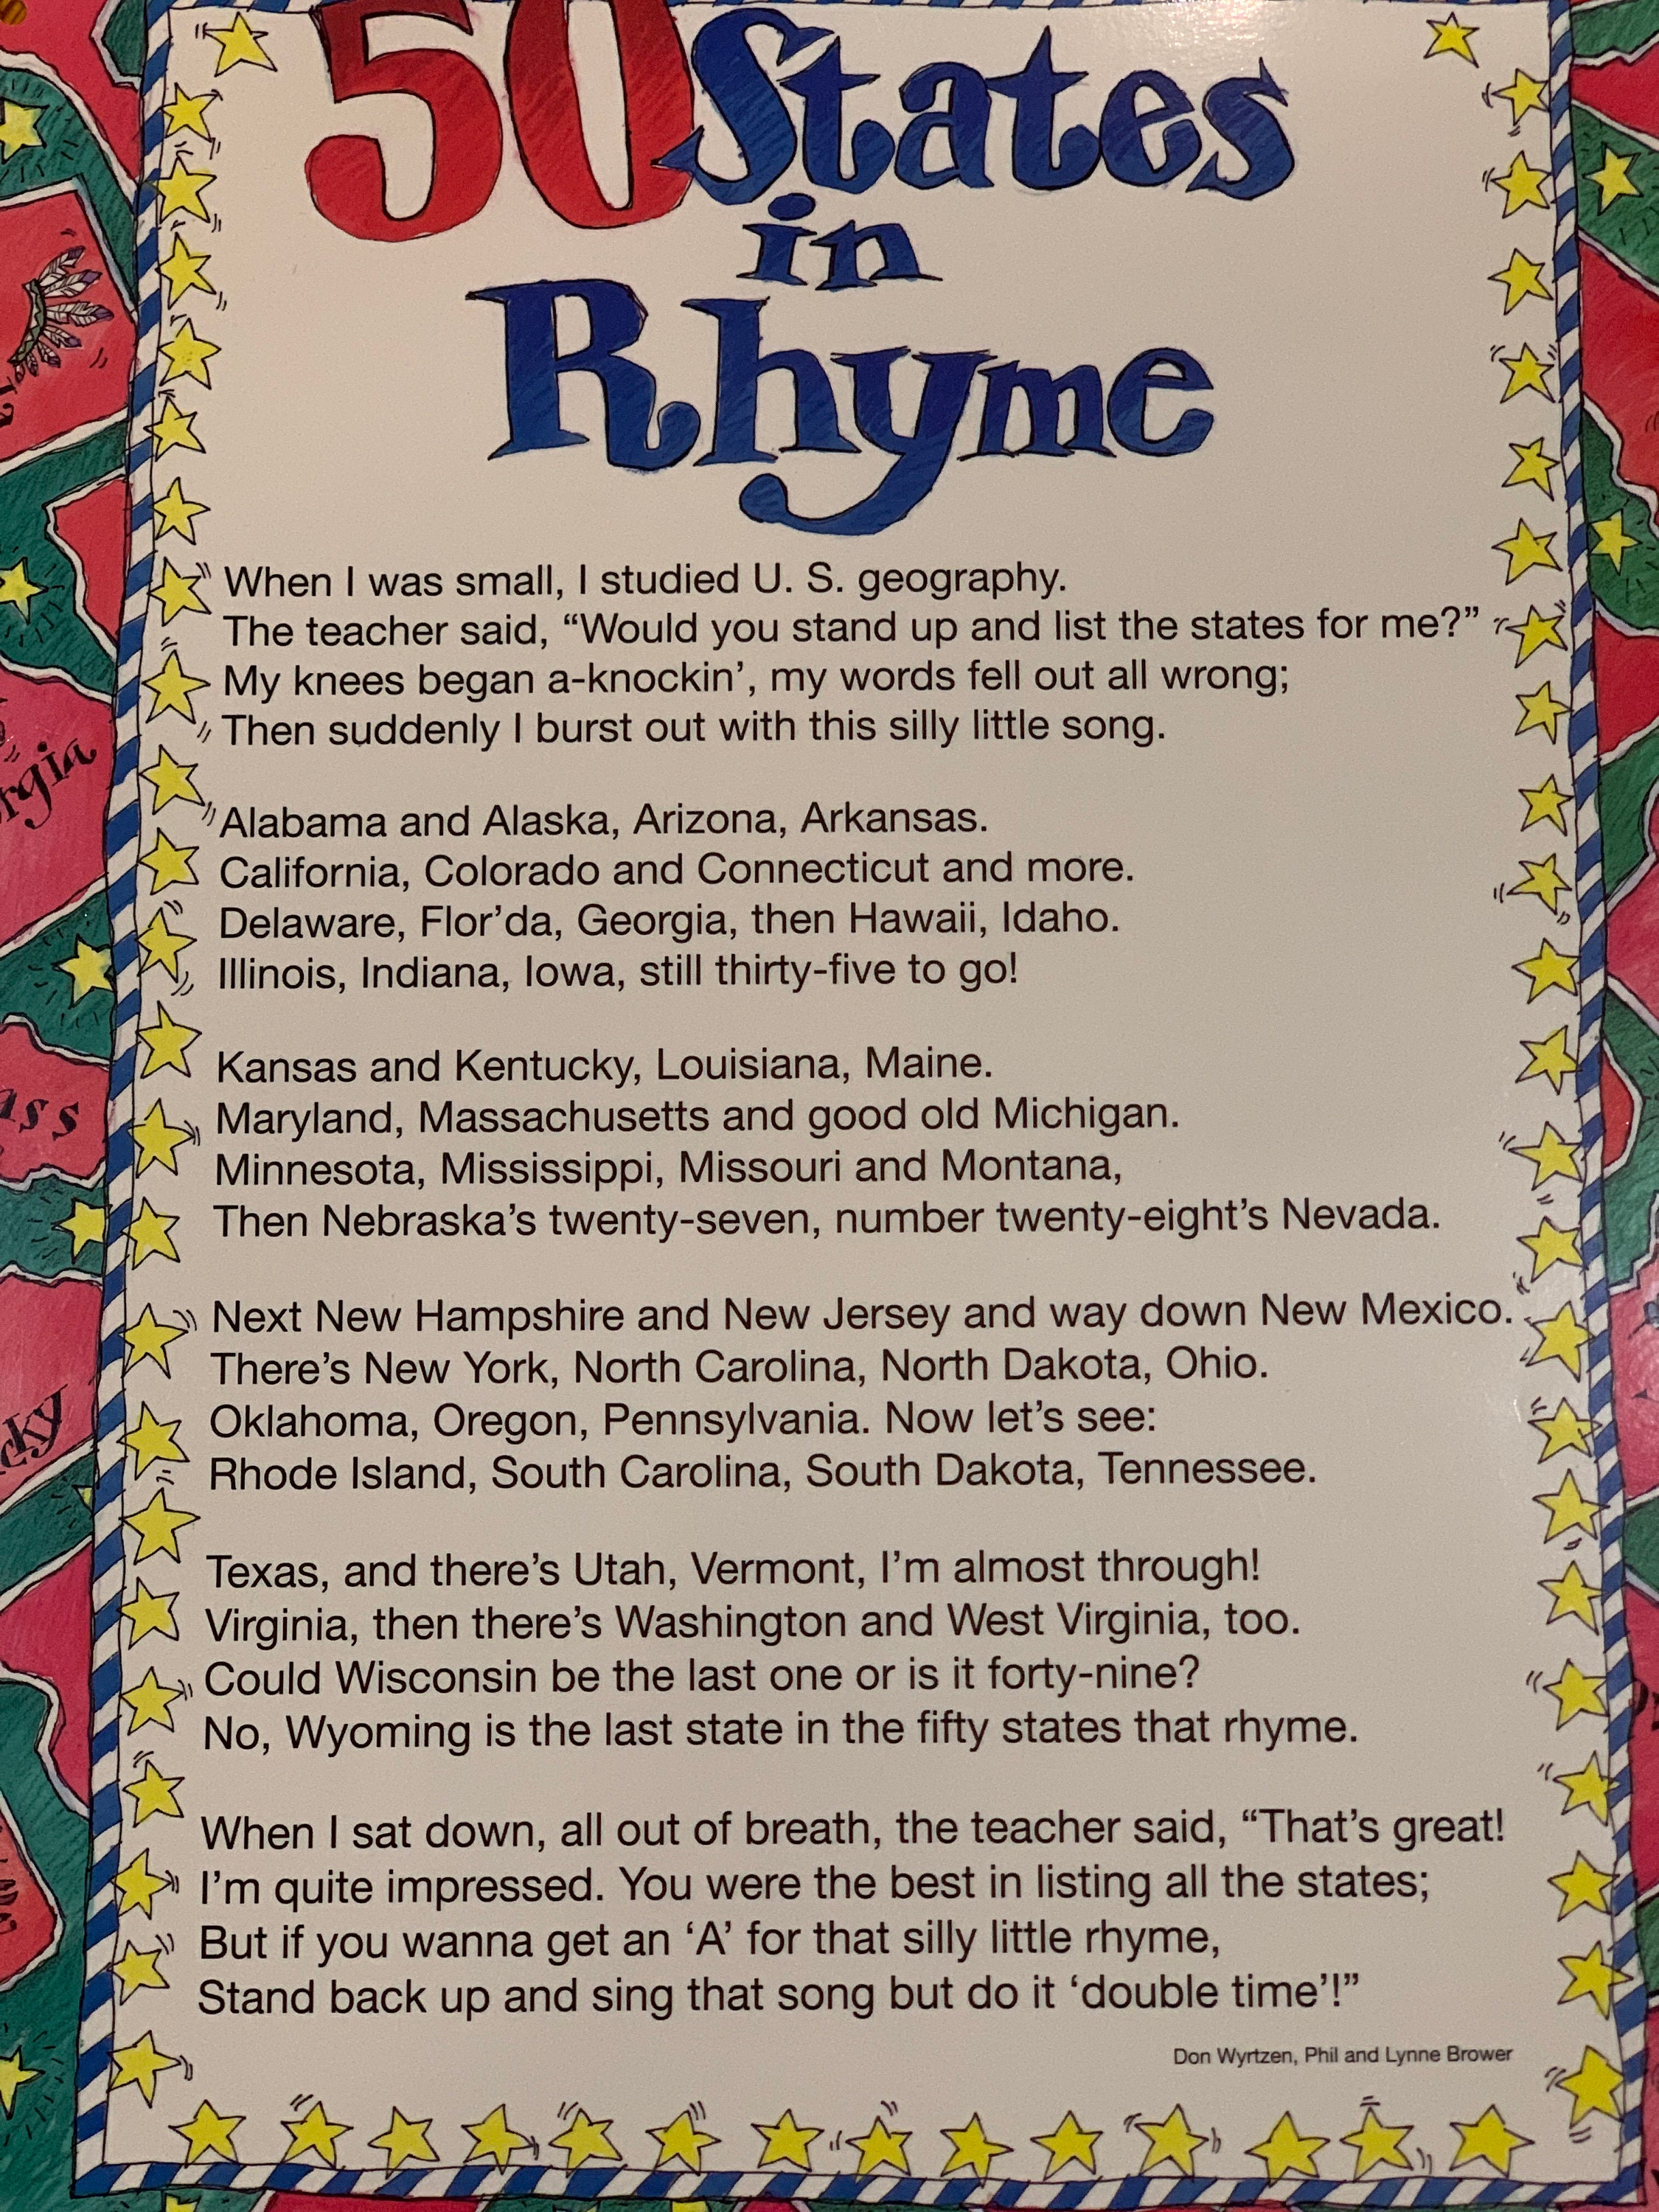 50 States
in
Rhyme
When I was small, I studied U. S. geography.
The teacher said, “Would you stand up and list the states for me?”
My knees began a-knockin’, my words fell out all wrong;
Then suddenly I burst out with this silly little song.
Alabama and Alaska, Arizona, Arkansas.
California, Colorado and Connecticut and more.
Delaware, Flor’da, Georgia, then Hawaii, Idaho.
Illinois, Indiana, Iowa, still thirty-five to go!
Kansas and Kentucky, Louisiana, Maine.
Maryland, Massachusetts and good old Michigan.
Minnesota, Mississippi, Missouri and Montana,
Then Nebraska’s twenty-seven, number twenty-eight’s Nevada.
Next New Hampshire and New Jersey and way down New Mexico.
There’s New York, North Carolina, North Dakota, Ohio.
Oklahoma, Oregon, Pennsylvania. Now let’s see:
Rhode Island, South Carolina, South Dakota, Tennessee.
Texas, and there’s Utah, Vermont, I’m almost through!
Virginia, then there’s Washington and West Virginia, too.
Could Wisconsin be the last one or is it forty-nine?
No, Wyoming is the last state in the fifty states that rhyme.
When I sat down, all out of breath, the teacher said, “That’s great!
I’m quite impressed. You were the best in listing all the states;
But if you wanna get an ‘A’ for that silly little rhyme,
Stand back up and sing that song but do it ‘double time’!”
Don Wyrtzen, Phil and Lynne Brower
rgia
ass
cky